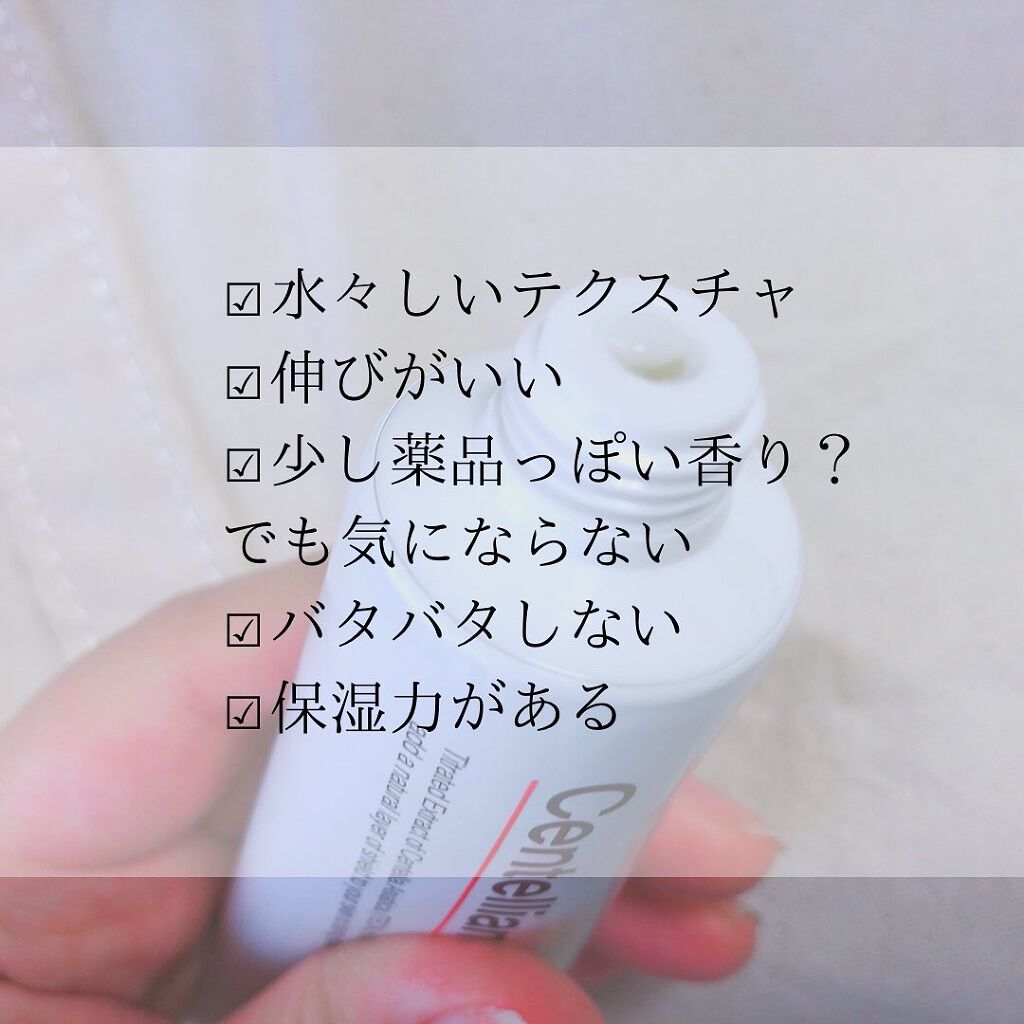 ☑水々しいテクスチャ
☑伸びがいい
☑少し薬品っぽい香り？
でも気にならない
☑バタバタしない
☑保湿力がある
Centellian
Titrated Extract of Centella Asiatica
add a natural layer of shield to your